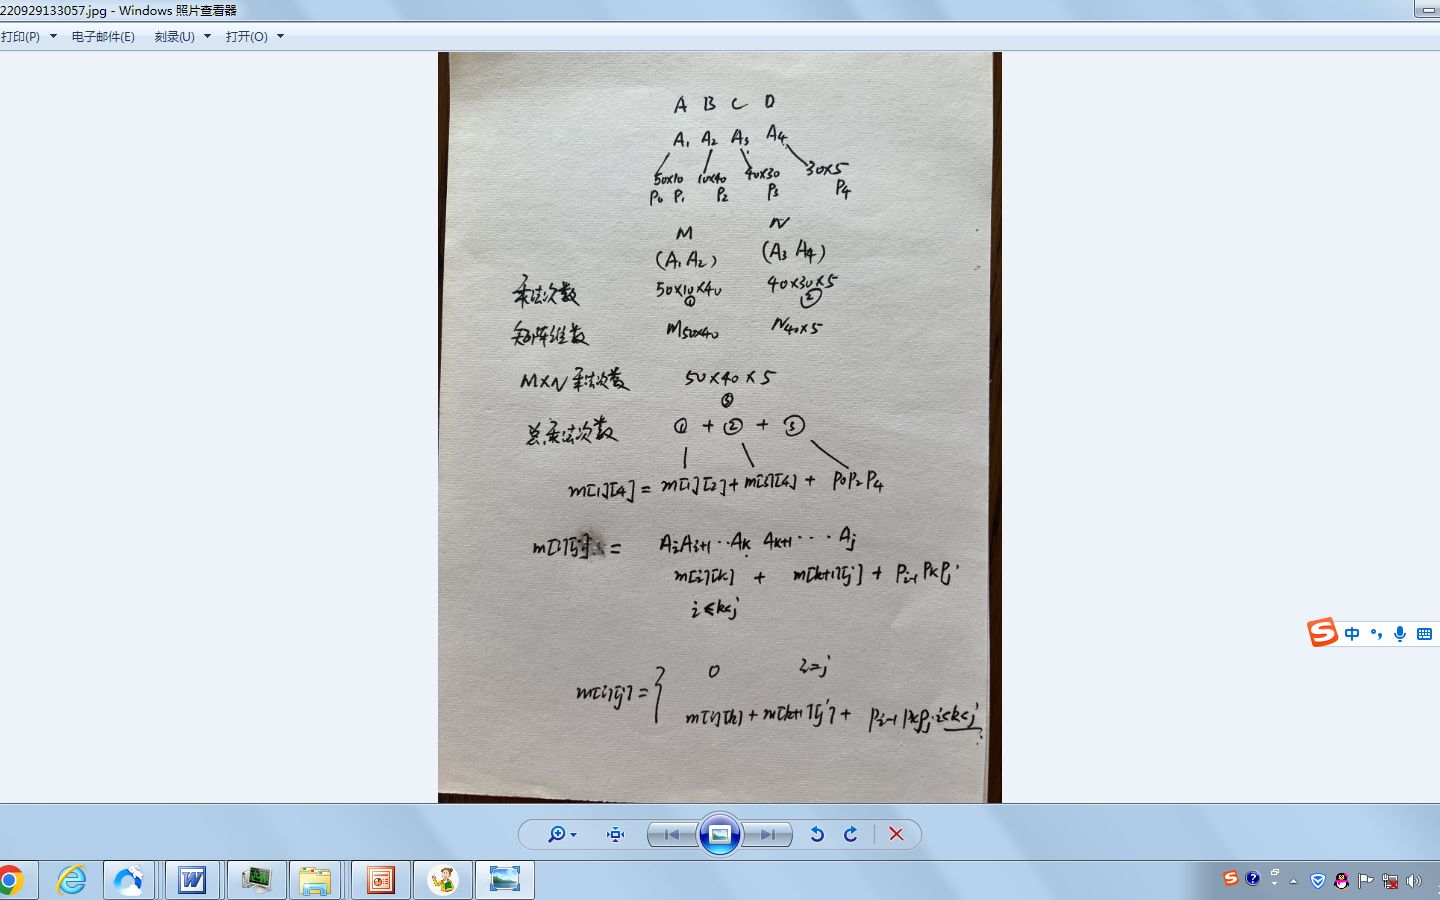 220929133057.jpg - Windows 照片查看器
打印(P) 电子邮件(E) 刻录(U) 打开(O)
A B C D
A₁ A₂ A₃ A₄
50×10 10×40 40×30 30×5
P₀ P₁ P₂ P₃ P₄
M N
(A₁A₂) (A₃ A₄)
乘法次数 50×10×40 40×30×5
① ②
矩阵维数 M50×40 N40×5
M×N 乘法次数 50×40×5
③
总乘法次数 ① + ② + ③
m[1][4] = m[1][2] + m[3][4] + P₀P₂P₄
m[i][j] = AᵢAᵢ₊₁··Aₖ Aₖ₊₁···Aⱼ
m[i][k] + m[k+1][j] + Pᵢ₋₁PₖPⱼ
i≤k<j
m[i][j] = { 0 i=j
m[i][k] + m[k+1][j] + Pᵢ₋₁PₖPⱼ i≤k<j
中